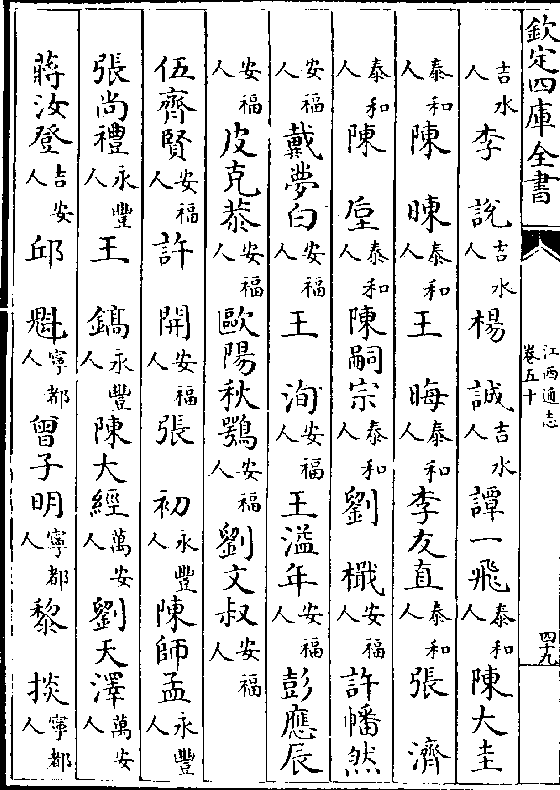 欽定四庫全書
江西通志
卷五十
四十九
吉水人 李說 吉水人 楊誠 吉水人 譚一飛 泰和人 陳大圭
泰和人 陳暕 泰和人 王晦 泰和人 李友直 泰和人 張濟
泰和人 陳垕 泰和人 陳嗣宗 泰和人 劉檝 安福人 許幡然
安福人 戴夢白 安福人 王洵 安福人 王溢年 安福人 彭應辰
安福人 皮克恭 安福人 歐陽秋鶚 安福人 劉文叔 安福人
伍齊賢 安福人 許開 安福人 張初 永豐人 陳師孟 永豐人
張尚禮 永豐人 王鎬 永豐人 陳大經 萬安人 劉天澤 萬安人
蔣汝登 吉安人 邱魁 寧都人 曾子明 寧都人 黎掞 寧都人